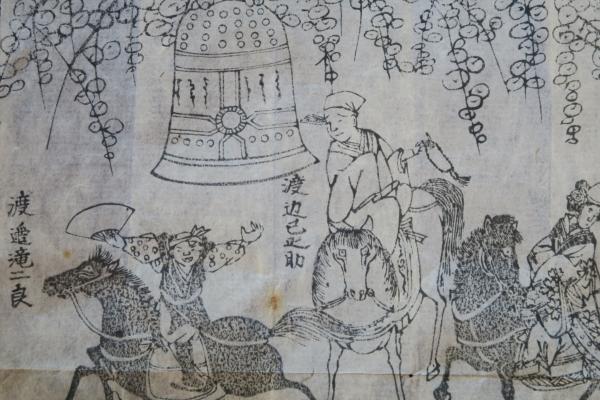 渡辺己之助
渡邉滝二良